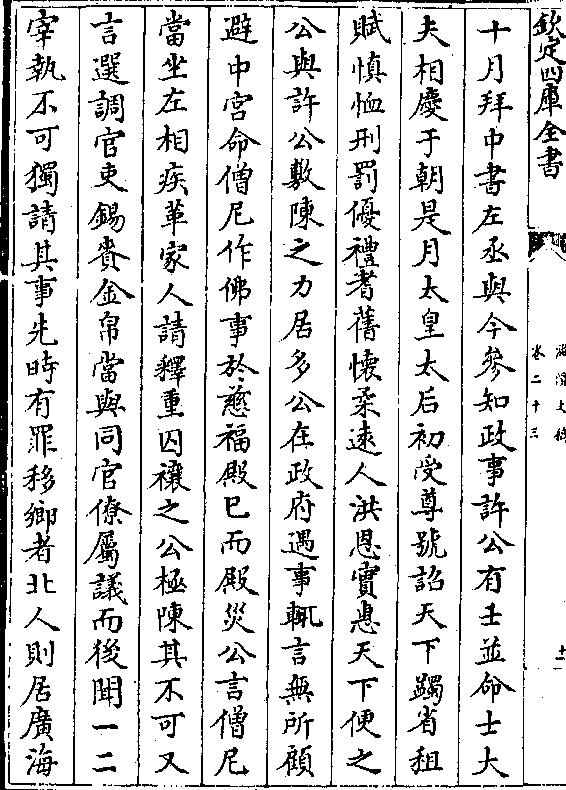 欽定四庫全書
卷二十三
十月拜中書左丞與今參知政事許公有壬並命士大
夫相慶于朝是月太皇太后初受尊號詔天下蠲省租
賦慎恤刑罰優禮耆舊懷柔逺人洪恩實惠天下便之
公與許公敷陳之力居多公在政府遇事輒言無所顧
避中宮命僧尼作佛事於慈福殿已而殿災公言僧尼
當坐左相疾革家人請釋重囚禳之公極陳其不可又
言選調官吏錫賚金帛當與同官僚屬議而後聞一二
宰執不可獨請其事先時有罪移鄉者北人則居廣海